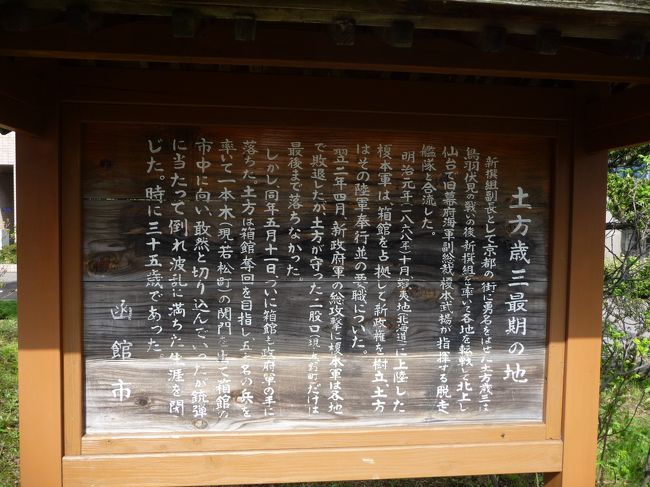 土方歳三最期の地
新撰組副長として京都の街に勇名をはせた土方歳三は
鳥羽伏見の戦いの後、新撰組を率いて各地を転戦して北上し
仙台で旧幕府海軍副総裁榎本武揚が指揮する脱走
艦隊と合流した。
明治元年(一八六八年)十月蝦夷地(北海道)に上陸した
榎本軍は、箱館を占拠して新政権を樹立土方
はその陸軍奉行並の要職についた。
翌二年四月、新政府軍の総攻撃に榎本軍は各地
で敗退したが土方が守った二股口(現・大野町)だけは
最後まで落ちなかった。
しかし同年五月十一日、ついに箱館も政府軍の手に
落ちた。土方は箱館奪回を目指し、五十名の兵を
率いて一本木(現・若松町)の関門を出て箱館の
市中に向い、敢然と切り込んでいったが、銃弾
に当たって倒れ波乱に満ちた生涯を閉
じた。時に三十五歳であった。
函館市